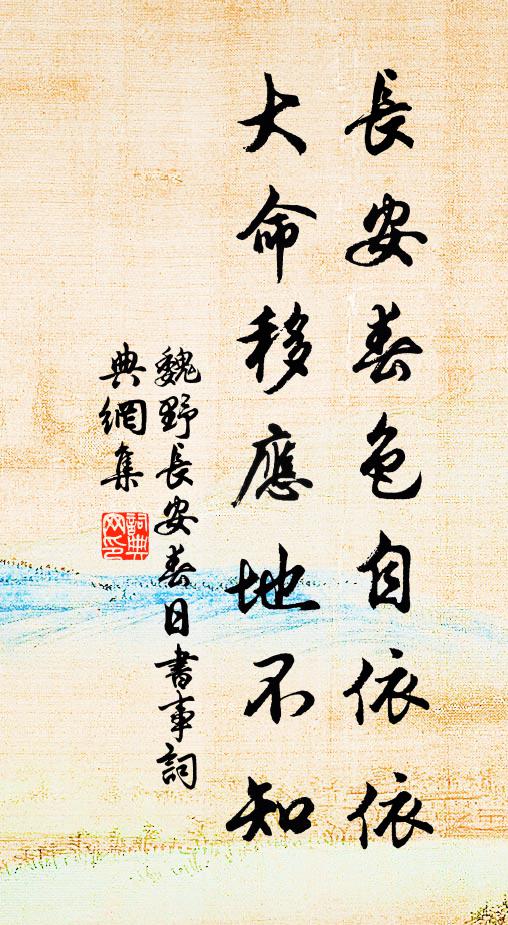 長安春色自依依
大命移應地不知
魏野長安春日書事詞
典網集
詞典
網印